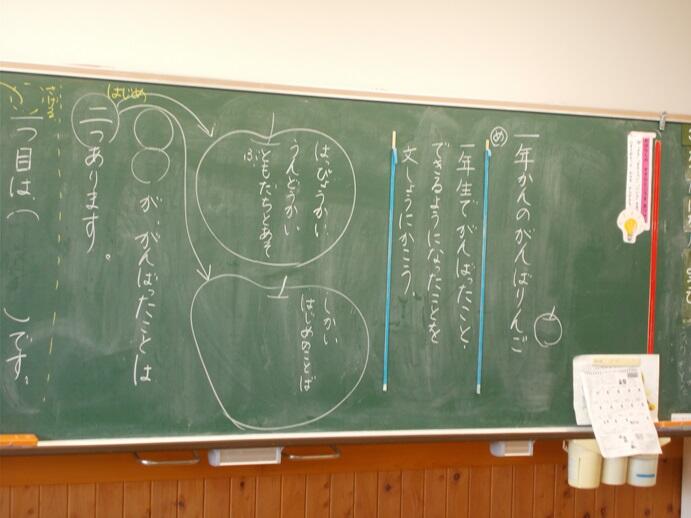 一年かんのがんばりんご
め
一年生でがんばったこと・
できるようになったことを
文しょうにかこう。
はっぴょうかい
うんどうかい
ともだちとあそぶ
しかい
はじめのことば
はじめ
○○が、がんばったことは
二つあります。
一つ目は、(　　　)です。